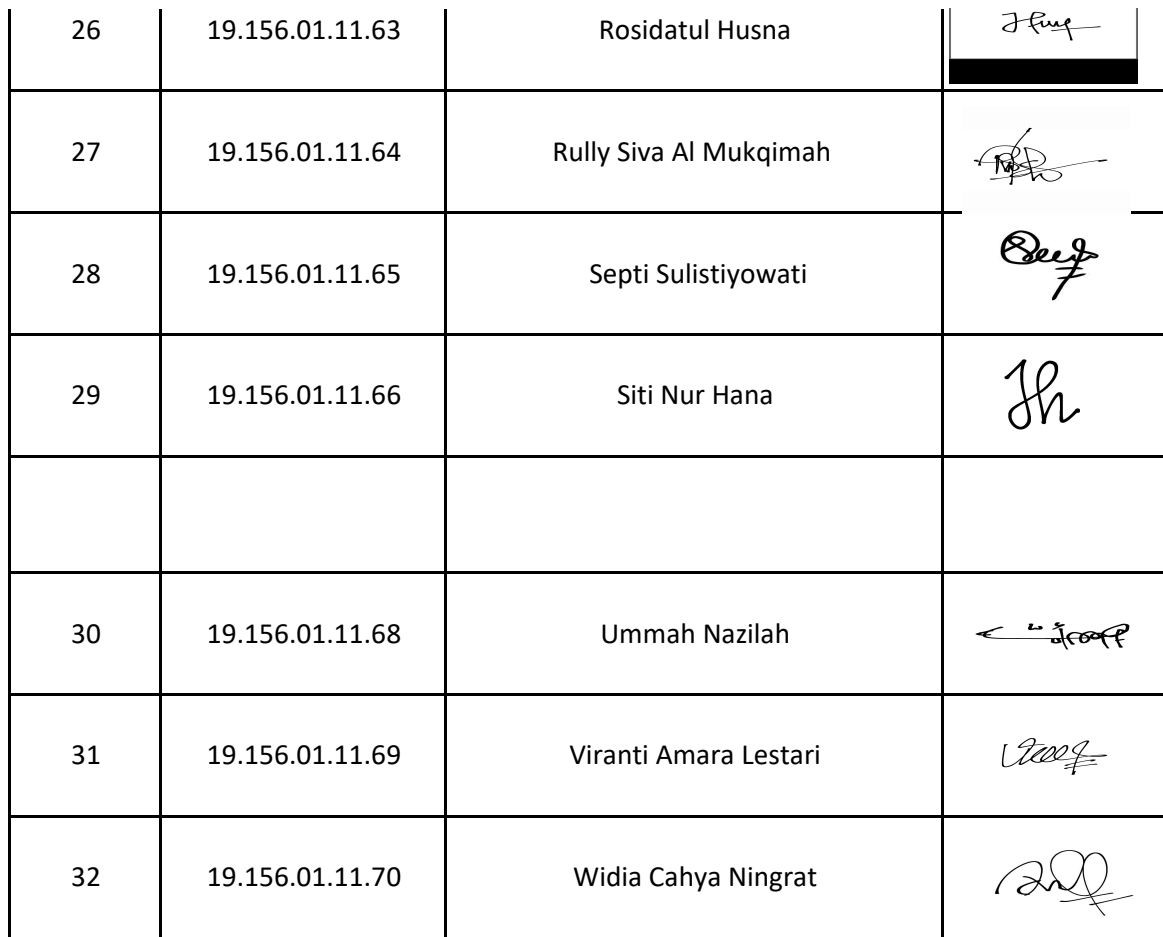 26 19.156.01.11.63 Rosidatul Husna
27 19.156.01.11.64 Rully Siva Al Mukqimah
28 19.156.01.11.65 Septi Sulistiyowati
29 19.156.01.11.66 Siti Nur Hana
30 19.156.01.11.68 Ummah Nazilah
31 19.156.01.11.69 Viranti Amara Lestari
32 19.156.01.11.70 Widia Cahya Ningrat